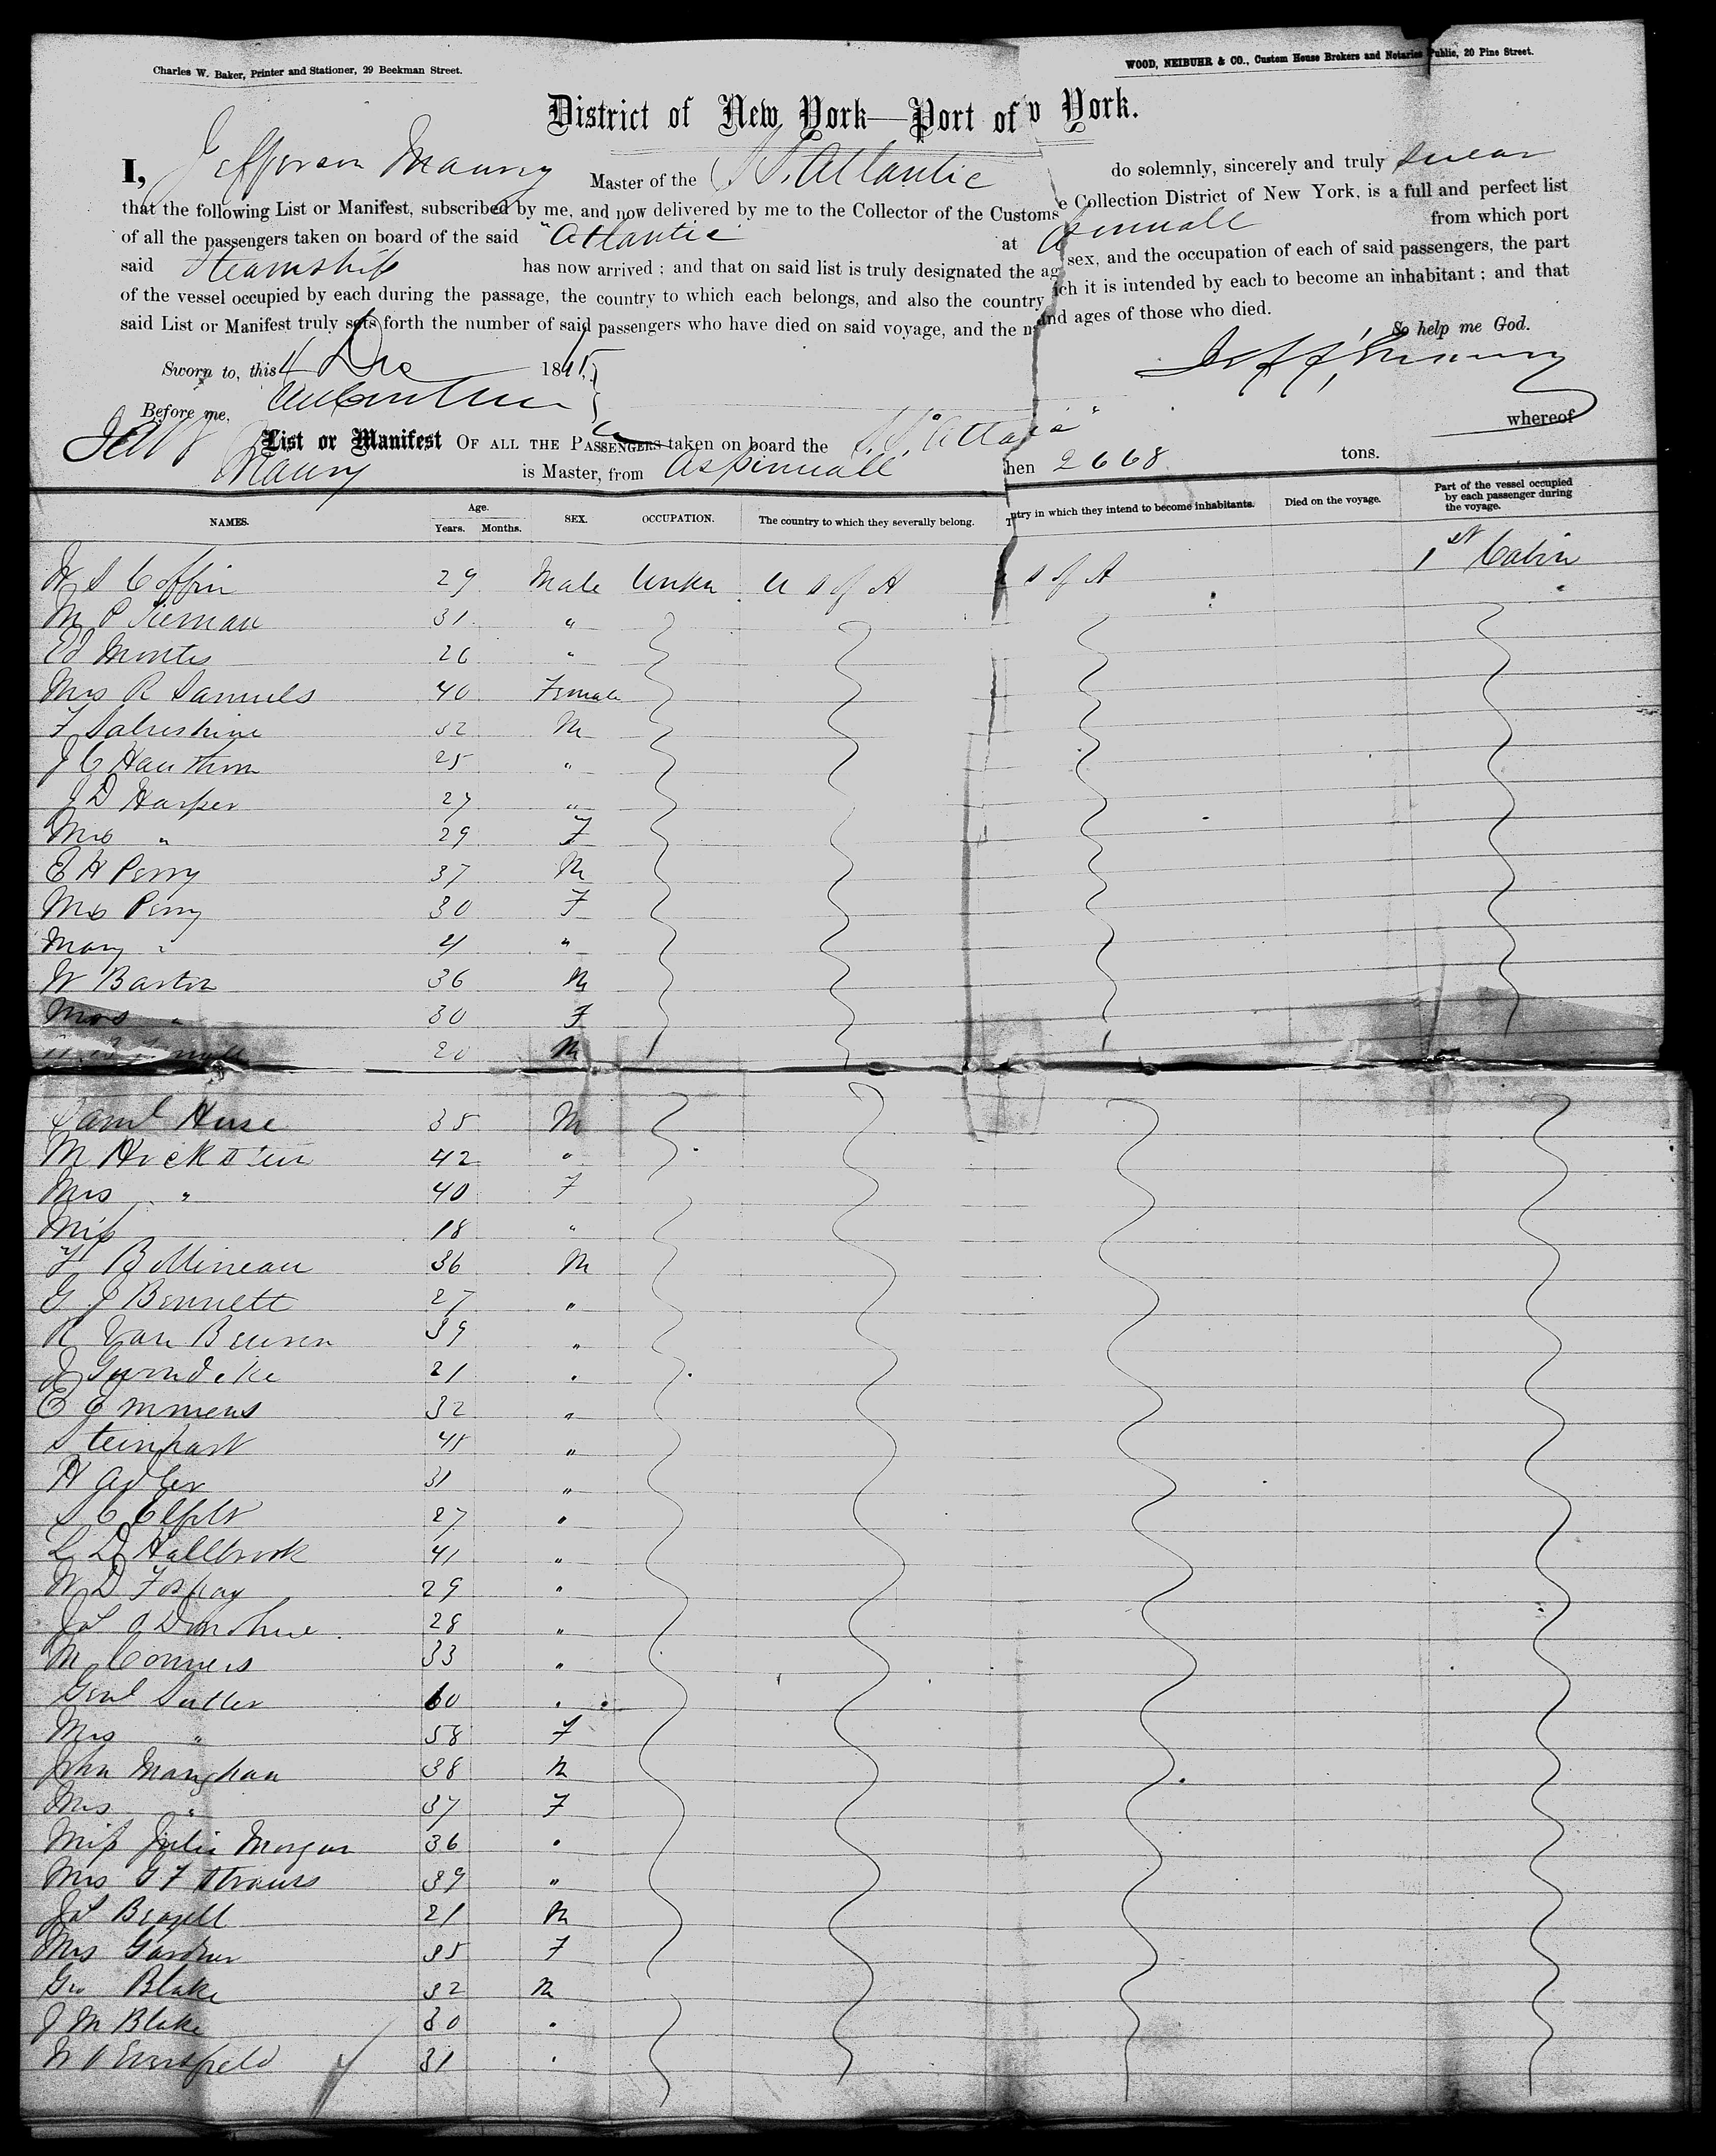 Charles W. Baker, Printer and Stationer, 29 Beekman Street.
WOOD, NEIBUHR & CO., Custom House Brokers and Notaries Public, 20 Pine Street.
District of New York—Port of York.
I, Jefferson Maury Master of the S.S. Atlantic do solemnly, sincerely and truly swear
that the following List or Manifest, subscribed by me, and now delivered by me to the Collector of the Customs e Collection District of New York, is a full and perfect list
of all the passengers taken on board of the said "Atlantic at from which port
said Steamship has now arrived ; and that on said list is truly designated the ag sex, and the occupation of each of said passengers, the part
of the vessel occupied by each during the passage, the country to which each belongs, and also the country ich it is intended by each to become an inhabitant ; and that
said List or Manifest truly sets forth the number of said passengers who have died on said voyage, and the n and ages of those who died.
So help me God.
Sworn to, this 4 Dec 18
Jeff Maury
Before me,
whereof
List or Manifest OF ALL THE PASSENGERS taken on board the S.S.
Jeff Maury is Master, from Aspinwall hen 2668 tons.
NAMES. Age. Years. Months. SEX. OCCUPATION. The country to which they severally belong. ntry in which they intend to become inhabitants. Died on the voyage. Part of the vessel occupied by each passenger during the voyage.
W S Coffin 29 Male U S of A S of A 1st Cabin
M P Tiernan 31 "
Ed Montes 26 "
Mrs R Samuels 40 Female
F 32 M
J C Hawthorn 25 "
J D Harper 27 "
Mrs " 29 F
E H Perry 37 M
Mrs Perry 30 F
Mary " 4 "
W Barton 36 M
Mrs " 30 F
20 M
Saml Huse 35 M
M 42 "
Mrs " 40 F
Miss 18 "
36 M
G J Bennett 27 "
R Van Beuren 39 "
J 21 "
E Emmens 32 "
Steinhart 45 "
H Adler 31 "
S C 27 "
L D Hallbrook 41 "
W D 29 "
Jas O Donohue 28 "
M Conners 33 "
Genl Sutter 60 "
Mrs " 58 F
John Manghan 38 M
Mrs " 37 F
Miss Julia Morgan 36 "
Mrs G F Strauss 39 "
Jas 21 M
Mrs Gardner 35 F
Geo Blake 32 M
J M Blake 30 "
W 31 "